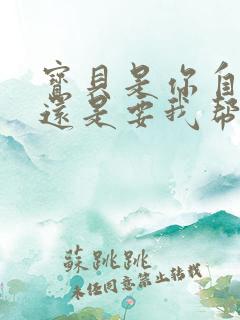 寶貝是你自
還是要我幫
蘇跳跳
未經同意禁止轉載